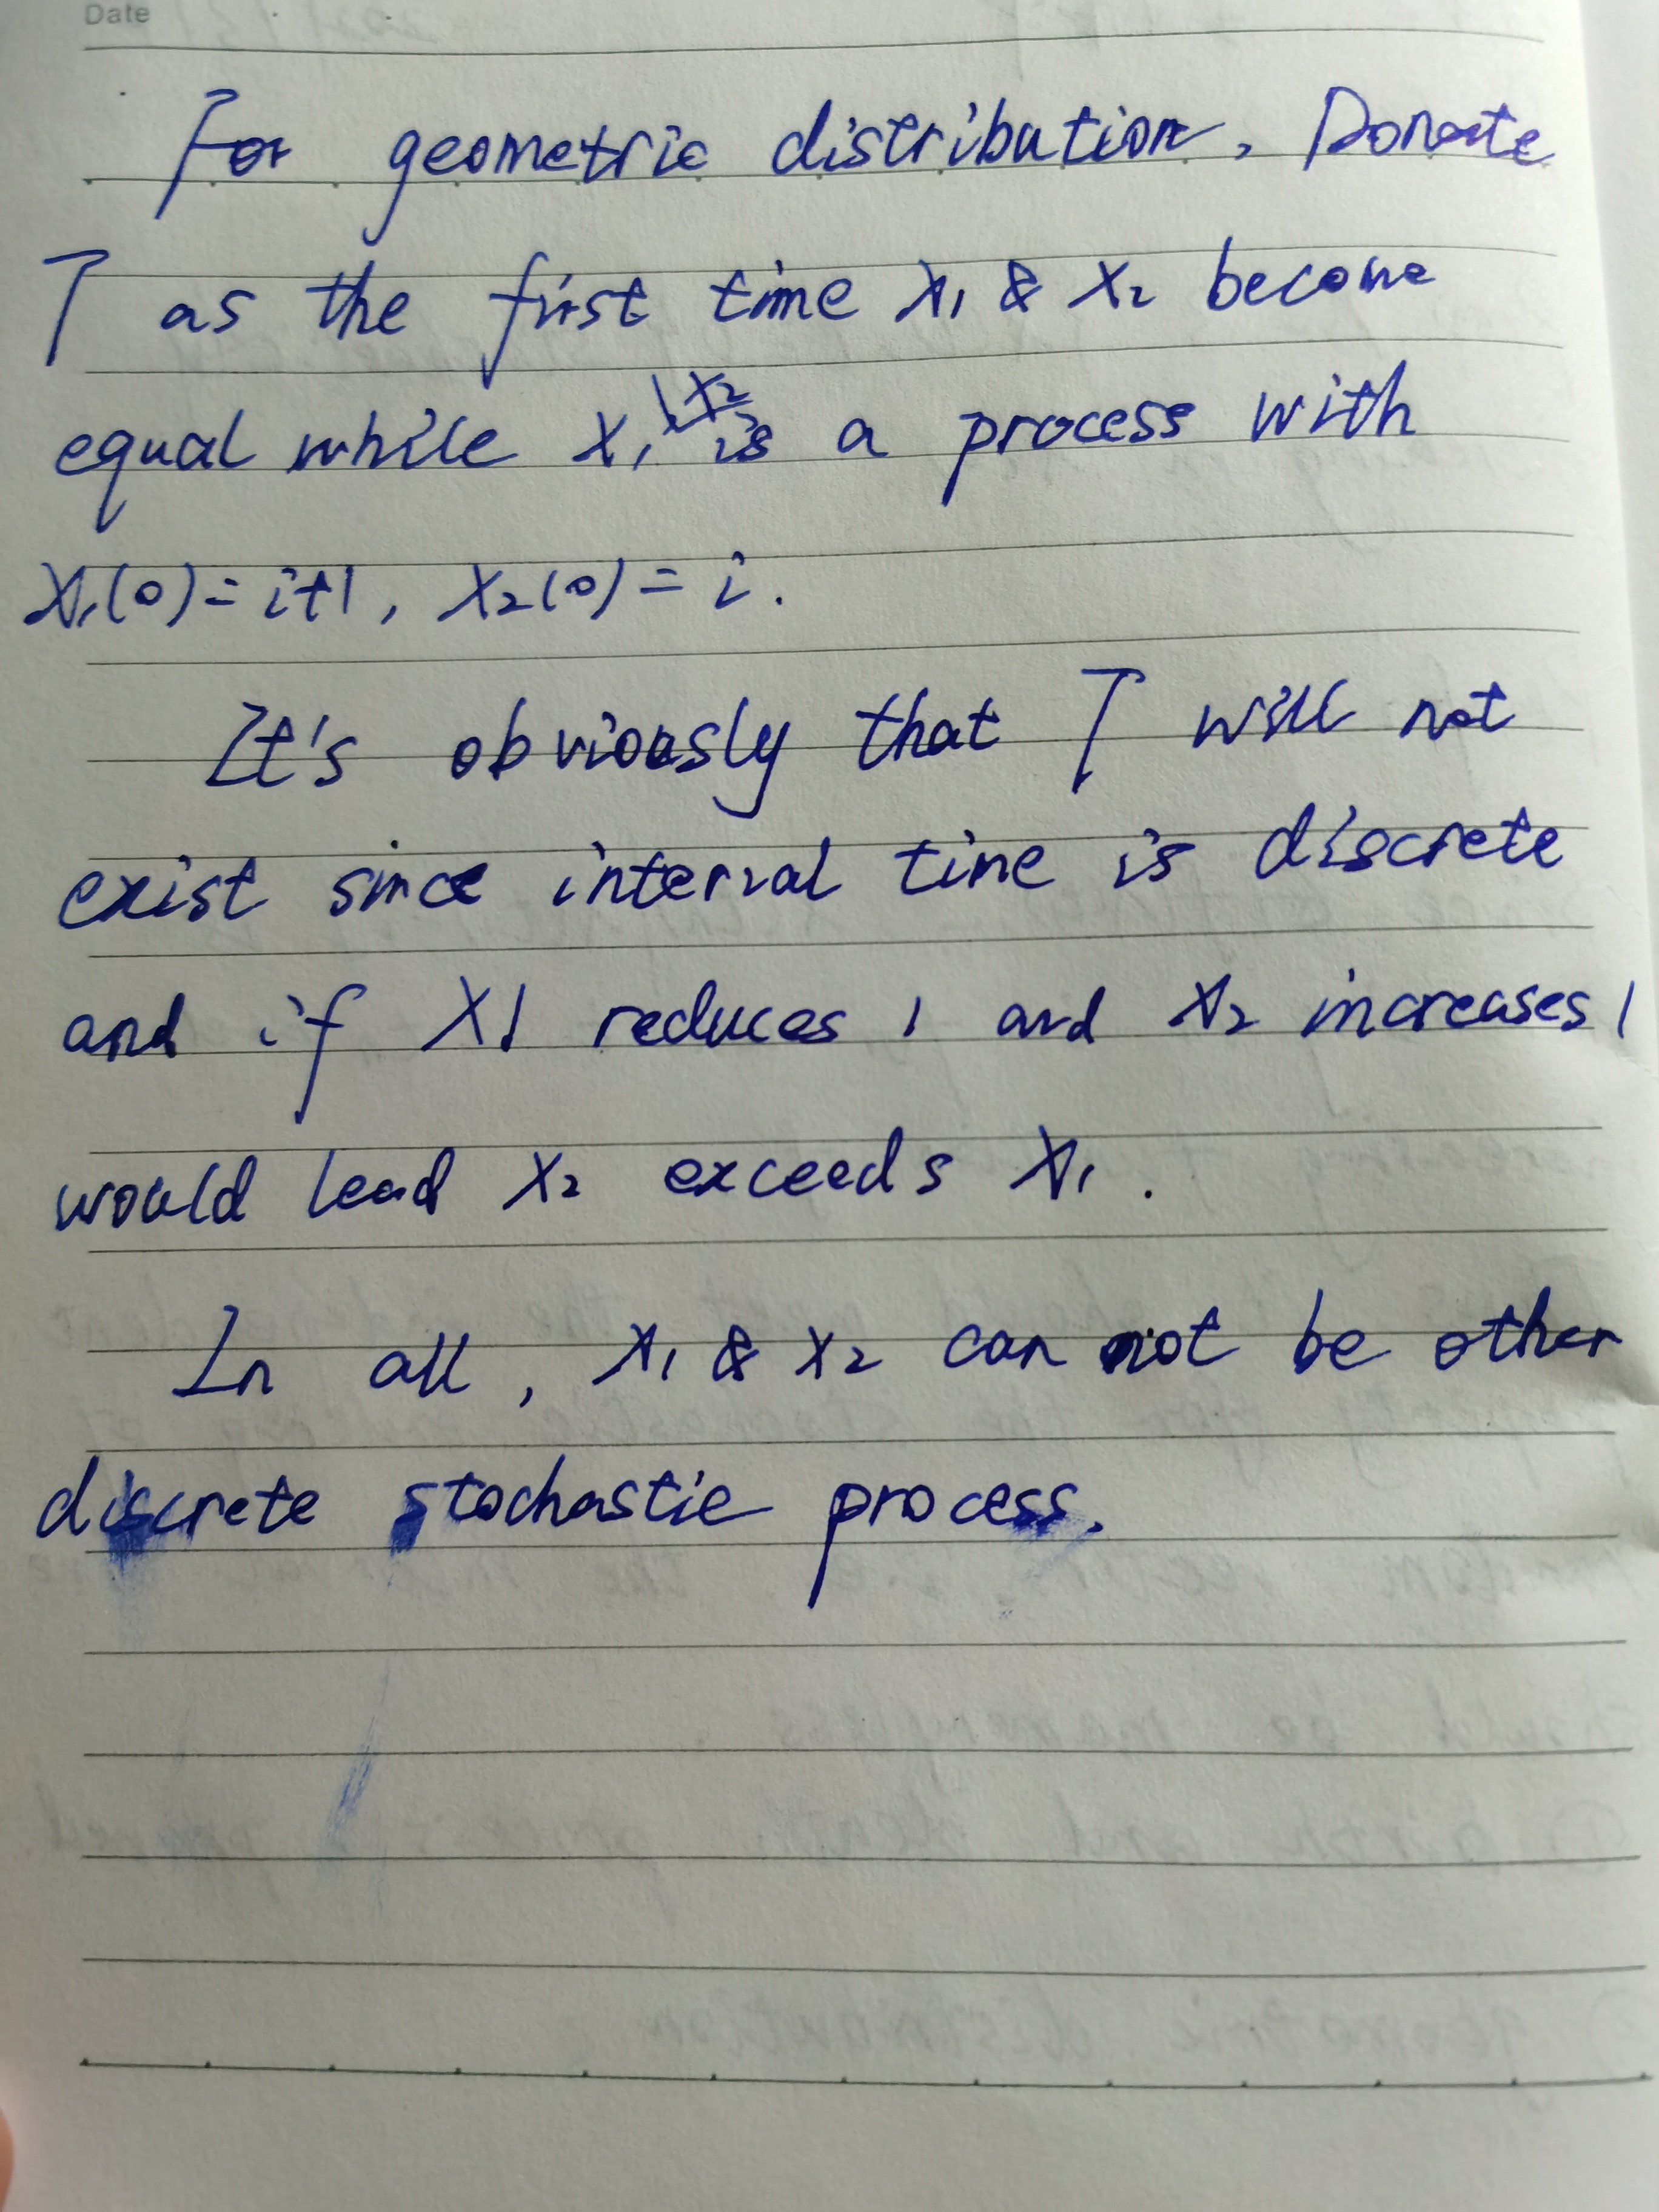 Date
For geometric distribution, Donate
T as the first time X1 & X2 become
equal while X1, X2 is a process with
X1(0)=i+1, X2(0)=i.
It's obviously that T will not
exist since interval time is discrete
and if X1 reduces 1 and X2 increases 1
would lead X2 exceeds X1.
In all, X1 & X2 can not be other
discrete stochastic process.